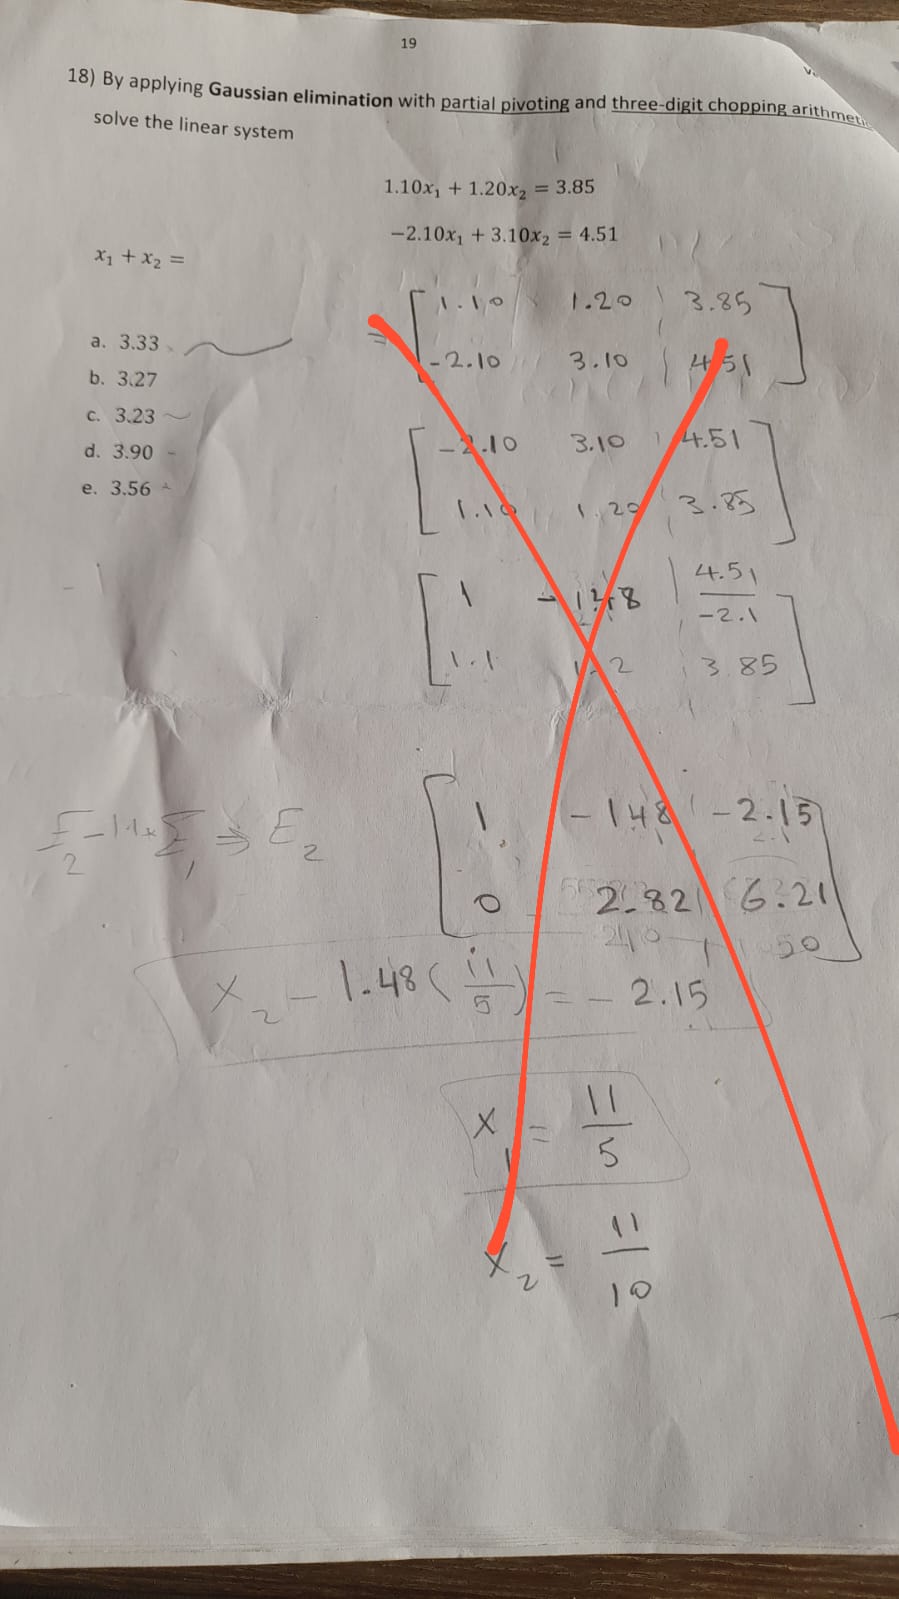 19
18) By applying Gaussian elimination with partial pivoting and three-digit chopping arithmetic
solve the linear system
1.10x₁ + 1.20x₂ = 3.85
−2.10x₁ + 3.10x₂ = 4.51
x₁ + x₂ =
a. 3.33
b. 3.27
c. 3.23
d. 3.90
e. 3.56
= [ 1.10 1.20 | 3.85
-2.10 3.10 | 4.51 ]
[ -2.10 3.10 | 4.51
1.10 1.20 | 3.85 ]
[ 1 -1.48 | 4.51/-2.1
1.1 1.2 | 3.85 ]
[ 1 -1.48 | -2.15
0 2.82 | 6.21 ]
E₂ - 1.1 x E₁ → E₂
x₂ - 1.48 (11/5) = - 2.15
x₁ = 11/5
x₂ = 11/10